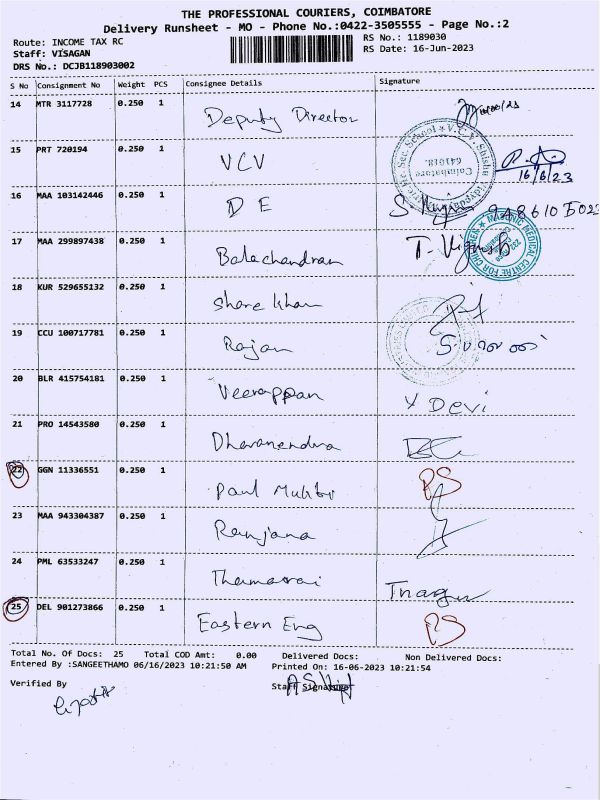 THE PROFESSIONAL COURIERS, COIMBATORE
Delivery Runsheet - MO - Phone No.:0422-3505555 - Page No.:2
Route: INCOME TAX RC
RS No.: 1189030
Staff: VISAGAN
RS Date: 16-Jun-2023
DRS No.: DCJB118903002
S No Consignment No Weight PCS Consignee Details Signature
14 MTR 3117728 0.250 1 Deputy Director
15 PRT 720194 0.250 1 VCV 16/6/23
16 MAA 103142446 0.250 1 D E
17 MAA 299897438 0.250 1 Balachandran T. Vignesh
18 KUR 529655132 0.250 1 Share khan
19 CCU 100717781 0.250 1 Rajan
20 BLR 415754181 0.250 1 Veerappan Y Devi
21 PRO 14543580 0.250 1 Dharanendra
22 GGN 11336551 0.250 1 Paul RS
23 MAA 943304387 0.250 1 Ranjana
24 PML 63533247 0.250 1 Thamarai
25 DEL 901273866 0.250 1 Eastern Eng RS
Total No. Of Docs: 25 Total COD Amt: 0.00 Delivered Docs: Non Delivered Docs:
Entered By :SANGEETHAMO 06/16/2023 10:21:50 AM Printed On: 16-06-2023 10:21:54
Verified By Staff Signature